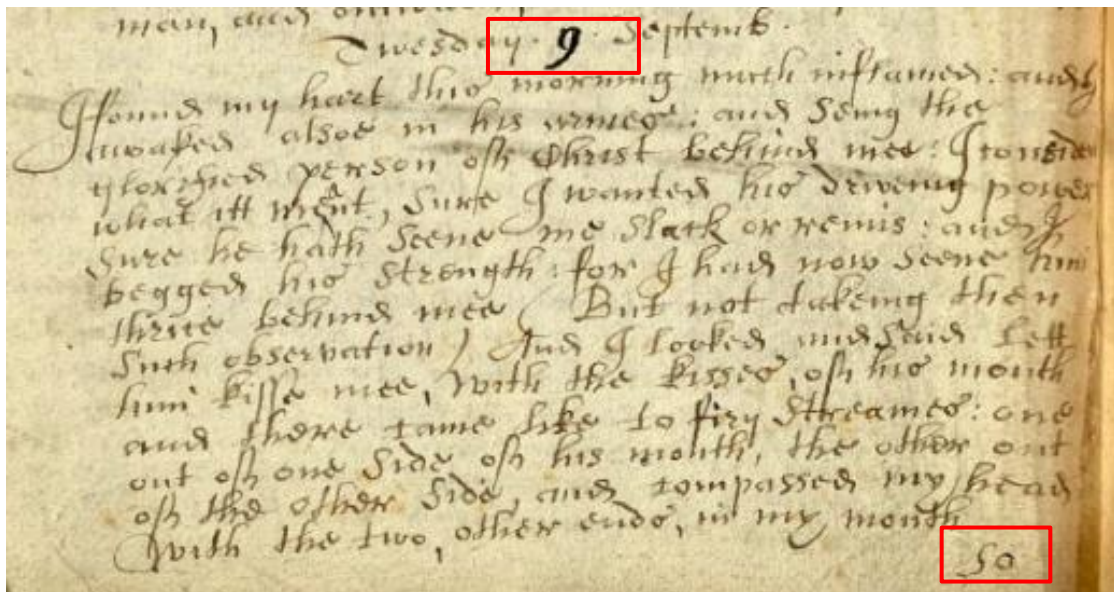 man, and
Twesday. 9. Septemb.
I found my hart this morning much inflamed: and I
awaked alsoe in his armes: and Seing the
glorified person off Christ behind mee: I conside
what itt ment, Sure I wanted his driveing power
Sure he hath Seene me Slack or remis: and I
begged his Strength: for I had now Seene him
thrice behind mee ( But not takeing then
Such observation) And I looked and Said Lett
him kisse mee, with the kisses, off his mouth
and there came like to firy Streames: one
out off one Side off his mouth, the other out
off the other Side, and compassed my head
with the two, other ends, in my mouth
So